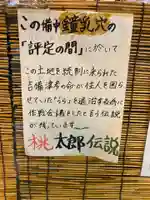 この備中鐘乳穴の
「評定の間」に於いて
この土地を統制に来られた
吉備津彦の命が住人を困ら
せていた「うら」を退治する為に
作戦会議をしたと言う伝説
が残っています
桃太郎伝説